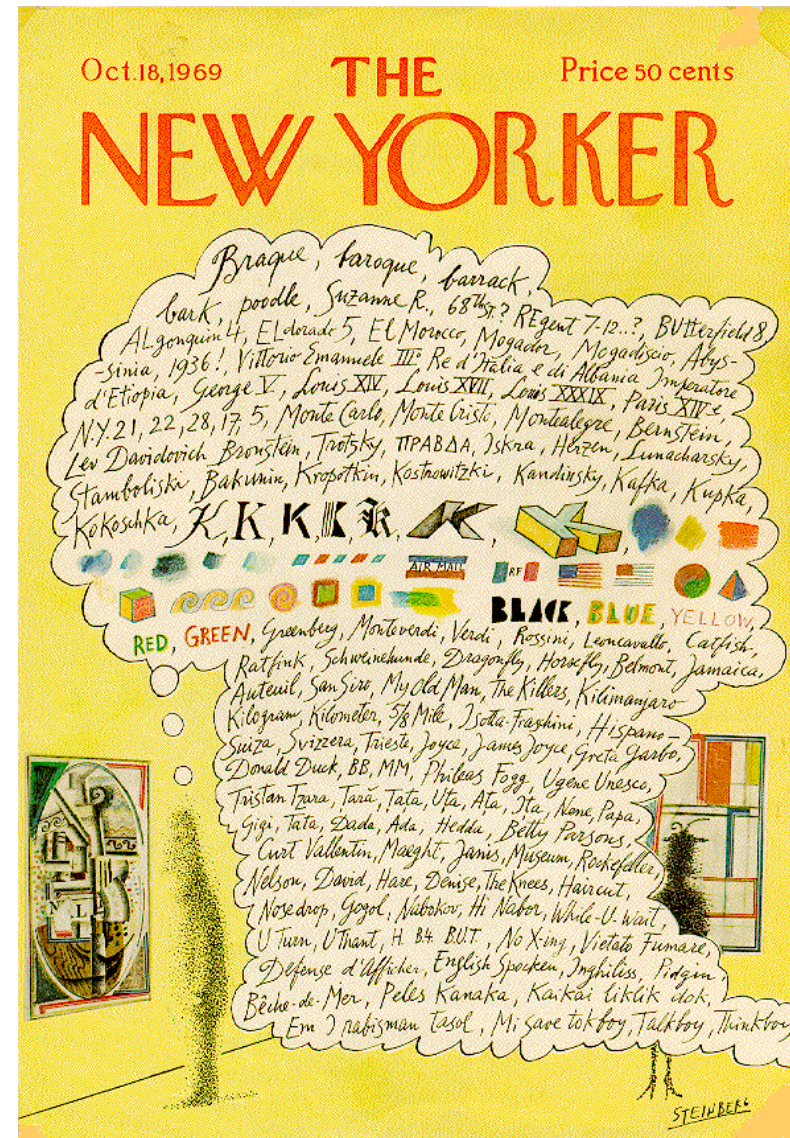 Oct.18,1969
THE
Price 50 cents
NEW YORKER
Braque, baroque, barrack,
bark, poodle, Suzanne R., 68th ST? REgent 7-12..?, BUtterfield 8,
ALgonquin 4, ELdorado 5, El Morocco, Mogador, Mogadiscio, Abys-
-sinia, 1936!, Vittorio Emanuele III° Re d'Italia e di Albania Imperatore
d'Etiopia, George V, Louis XIV, Louis XVII, Louis XXXIX, Paris XIVe,
N.Y. 21, 22, 28, 17, 5, Monte Carlo, Monte Cristo, Montealegre, Bernstein,
Lev Davidovich Bronstein, Trotzky, ПРАВДА, Iskra, Herzen, Lunacharsky,
Stamboliski, Bakunin, Kropotkin, Kostrowitzki, Kandinsky, Kafka, Kupka,
Kokoschka, K, K, K, K, K, K, K,
AIR MAIL
RF
BLACK, BLUE, YELLOW,
RED, GREEN, Greenberg, Monteverdi, Verdi, Rossini, Leoncavallo, Catfish,
Ratfink, Schweinehunde, Dragonfly, Horsefly, Belmont, Jamaica,
Auteuil, San Siro, My Old Man, The Killers, Kilimanjaro
Kilogram, Kilometer, 5/8 Mile, Isotta-Fraschini, Hispano-
Suiza, Svizzera, Trieste, Joyce, James Joyce, Greta Garbo,
Donald Duck, BB, MM, Phileas Fogg, Ugene Unesco,
Tristan Tzara, Tară, Tata, Uţa, Aţa, Iţa, Nene, Papa,
Gigi, Tata, Dada, Ada, Hedda, Betty Parsons,
Curt Vallentin, Maeght, Janis, Museum, Rockefeller,
Nelson, David, Hare, Denise, The Knees, Haircut,
Nosedrop, Gogol, Nabokov, Hi Nabor, While-U-Wait,
U Turn, U Thant, H. B4. BUT., No X-ing, Vietato Fumare,
Défense d'Afficher, English Spocken, Inghiliss, Pidgin,
Bêche-de-Mer, Peles Kanaka, Kaikai liklik dok,
Em I rabisman tasol, Mi save tokboy, Talkboy, Thinkboy
STEINBERG